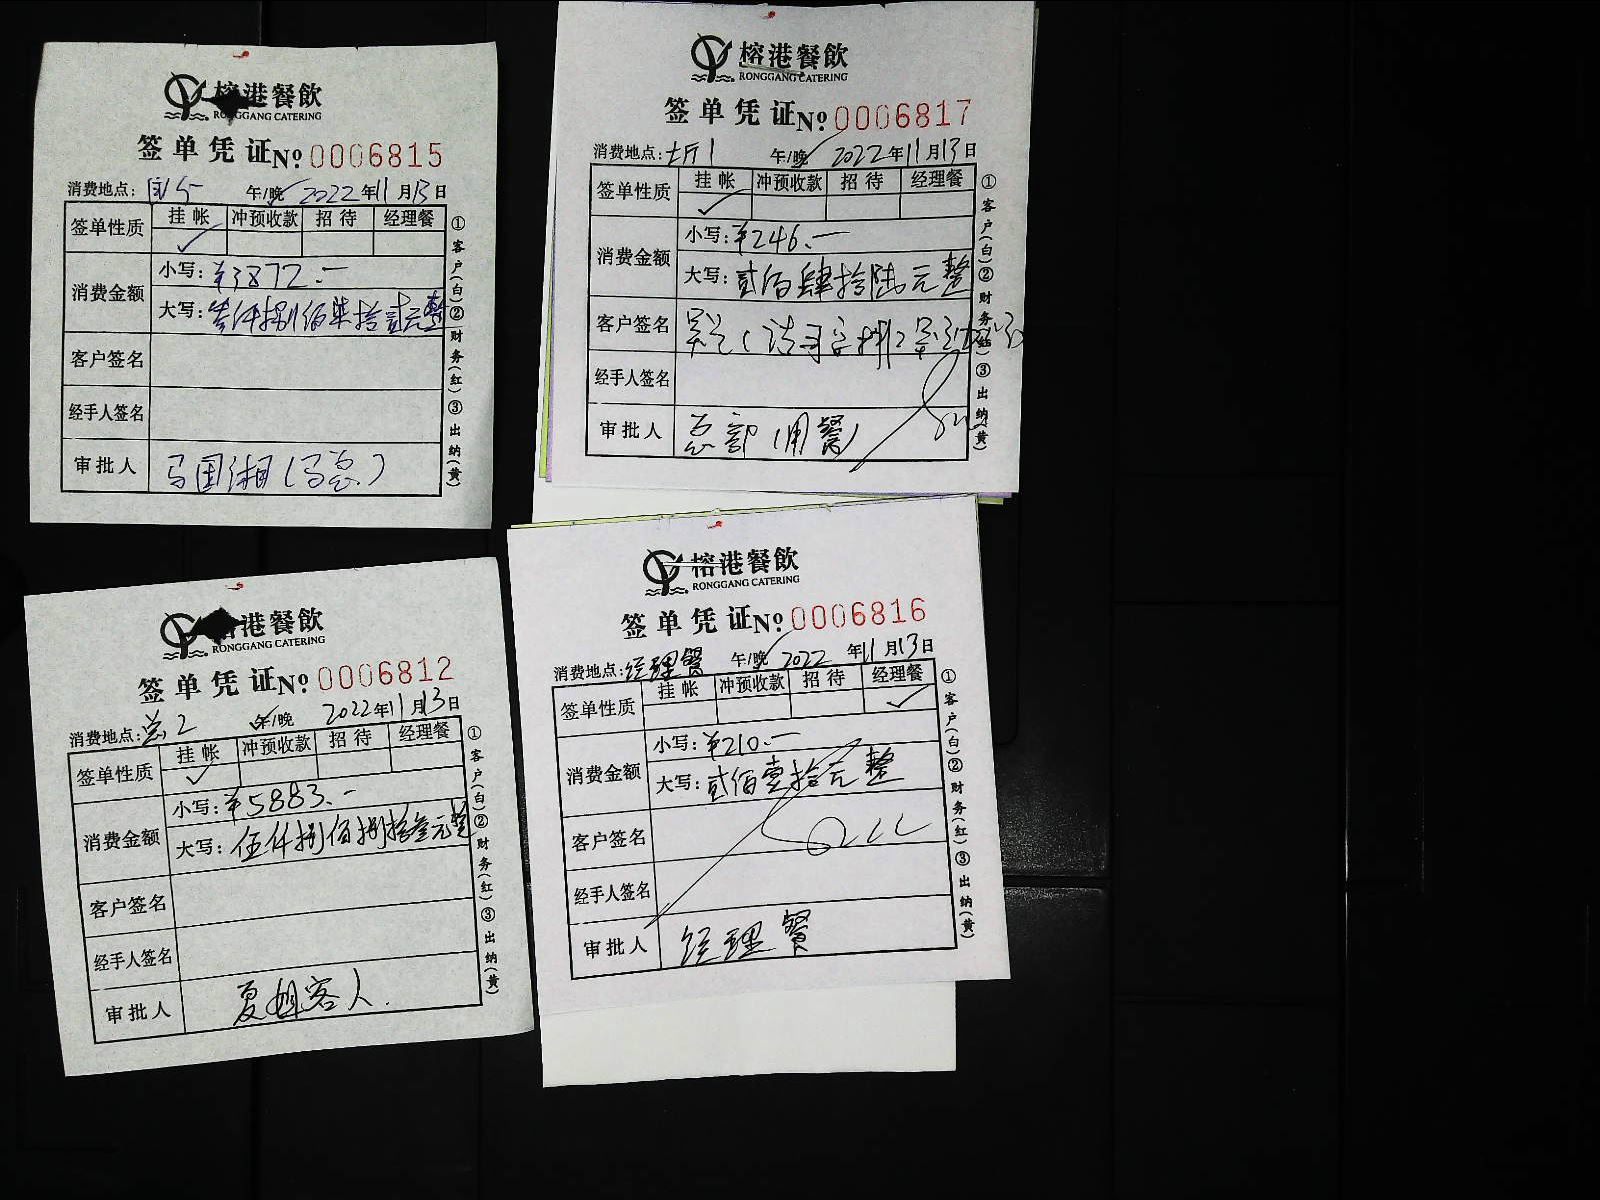 榕港餐飲
RONGGANG CATERING
签单凭证№ 0006815
消费地点: 午/晚 2022年11月13日
签单性质 挂帐 冲预收款 招待 经理餐
✓
消费金额 小写: ¥3872.-
大写: 叁仟捌佰柒拾贰元整
客户签名
经手人签名
审批人 马国湘(马总)
①客户(白)②财务(红)③出纳(黄)
榕港餐飲
RONGGANG CATERING
签单凭证№ 0006817
消费地点: 午/晚 2022年11月13日
签单性质 挂帐 冲预收款 招待 经理餐
✓
消费金额 小写: ¥246.-
大写: 贰佰肆拾陆元整
客户签名
经手人签名
审批人 总部(用餐)
①客户(白)②财务(红)③出纳(黄)
榕港餐飲
RONGGANG CATERING
签单凭证№ 0006812
消费地点: 总2 午/晚 2022年11月13日
签单性质 挂帐 冲预收款 招待 经理餐
✓
消费金额 小写: ¥5883.-
大写: 伍仟捌佰捌拾叁元整
客户签名
经手人签名
审批人 夏姐客人.
①客户(白)②财务(红)③出纳(黄)
榕港餐飲
RONGGANG CATERING
签单凭证№ 0006816
消费地点: 经理餐 午/晚 2022年11月13日
签单性质 挂帐 冲预收款 招待 经理餐
✓
消费金额 小写: ¥210.-
大写: 贰佰壹拾元整
客户签名
经手人签名
审批人 经理餐
①客户(白)②财务(红)③出纳(黄)